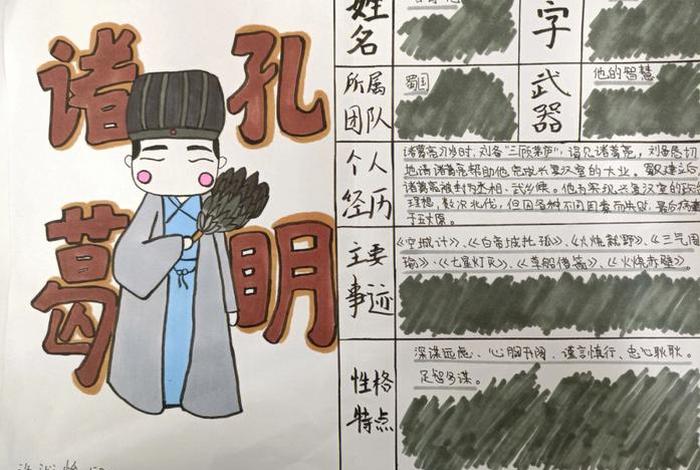 诸 孔
葛 明
姓名
字
所属团队
蜀国
武器
他的智慧
个人经历
诸葛亮27岁时，刘备“三顾茅庐”，请见诸葛亮，刘备恳切
地请诸葛亮帮助他完成兴复汉室的大业。蜀汉建立后，
诸葛亮被封为丞相、武乡侯。他为实现兴复汉室的政治
理想，数次北伐，但因各种不同因素而失败，最后病逝
于五丈原。
主要事迹
《空城计》、《白帝城托孤》、《火烧新野》、《三气周
瑜》、《七星灯灭》、《草船借箭》、《火烧赤壁》
性格特点
深谋远虑、心胸开阔、谨言慎行、忠心耿耿、
足智多谋。